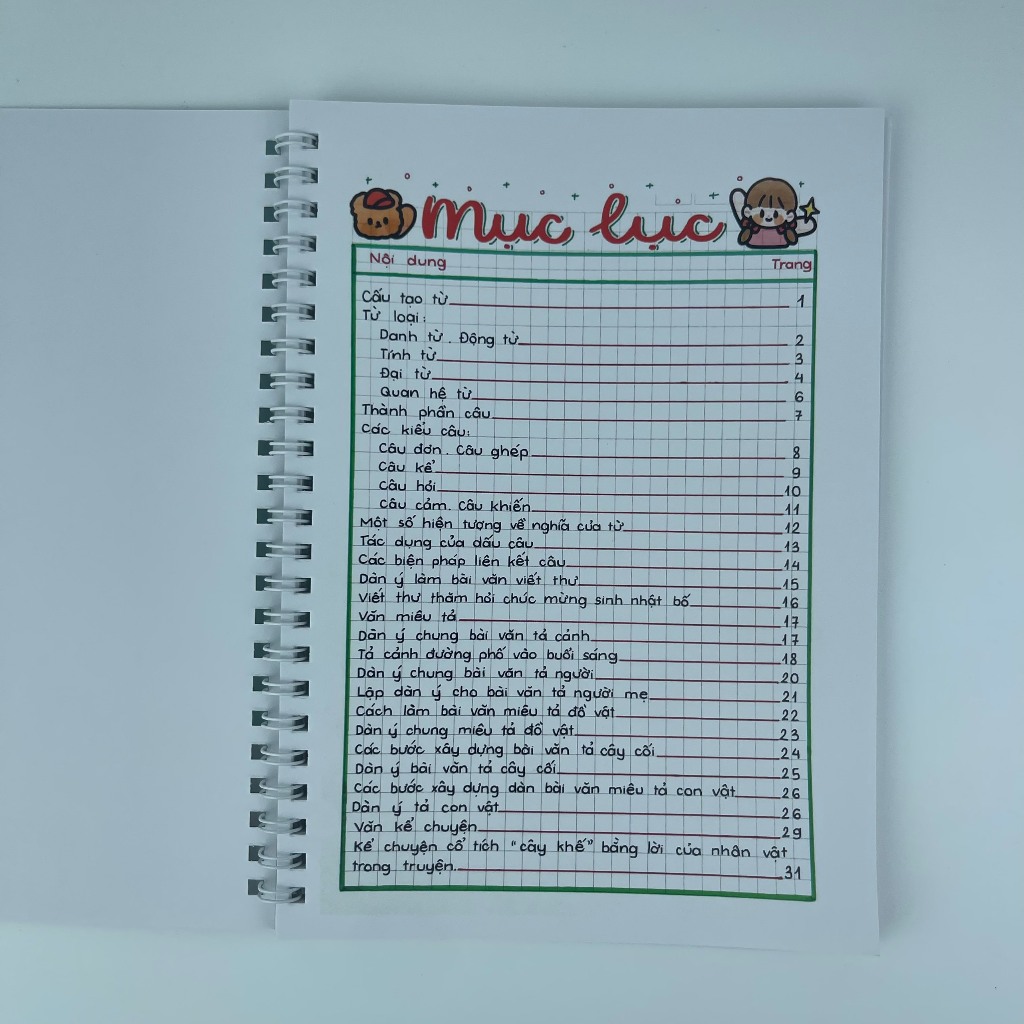 Mục lục
Nội dung Trang
Cấu tạo từ 1
Từ loại:
Danh từ. Động từ 2
Tính từ 3
Đại từ 4
Quan hệ từ 6
Thành phần câu 7
Các kiểu câu:
Câu đơn. Câu ghép 8
Câu kể 9
Câu hỏi 10
Câu cảm. Câu khiến 11
Một số hiện tượng về nghĩa của từ 12
Tác dụng của dấu câu 13
Các biện pháp liên kết câu 14
Dàn ý làm bài văn viết thư 15
Viết thư thăm hỏi chúc mừng sinh nhật bố 16
Văn miêu tả 17
Dàn ý chung bài văn tả cảnh 17
Tả cảnh đường phố vào buổi sáng 18
Dàn ý chung bài văn tả người 20
Lập dàn ý cho bài văn tả người mẹ 21
Cách làm bài văn miêu tả đồ vật 22
Dàn ý chung miêu tả đồ vật 23
Các bước xây dựng bài văn tả cây cối 24
Dàn ý bài văn tả cây cối 25
Các bước xây dựng dàn bài văn miêu tả con vật 26
Dàn ý tả con vật 26
Văn kể chuyện 29
Kể chuyện cổ tích "cây khế" bằng lời của nhân vật
trong truyện. 31